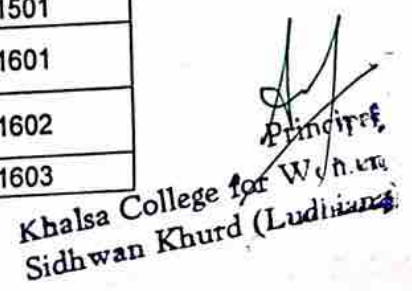 1501
1601
1602
1603
Principal,
Khalsa College for Women
Sidhwan Khurd (Ludhiana)